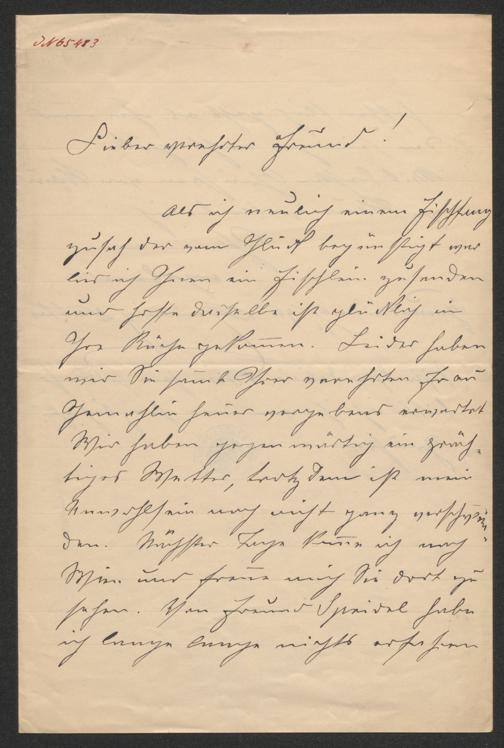 JN 65483
Lieber verehrter Freund!
Als ich neulich einem Fischfang
zusah der vom Glück begünstigt war
ließ ich Ihnen ein Fischlein zusenden
und hoffe dasselbe ist glücklich in
Ihre Küche gekommen. Leider haben
wir Sie samt Ihrer verehrten Frau
Gemahlin heuer vergebens erwartet
Wir haben gegenwärtig ein präch-
tiges Wetter, trotzdem ist mein
Unwohlsein noch nicht ganz verschwun-
den. Nächster Tage komme ich nach
Wien und freue mich Sie dort zu
sehen. Von Freund Speidel habe
ich lange lange nichts erfahren